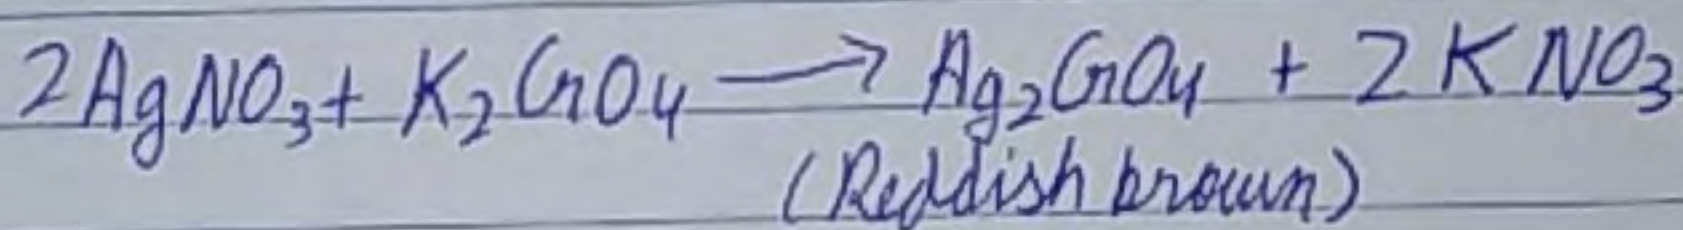 2AgNO₃ + K₂CrO₄ ⟶ Ag₂CrO₄ + 2KNO₃
(Reddish brown)